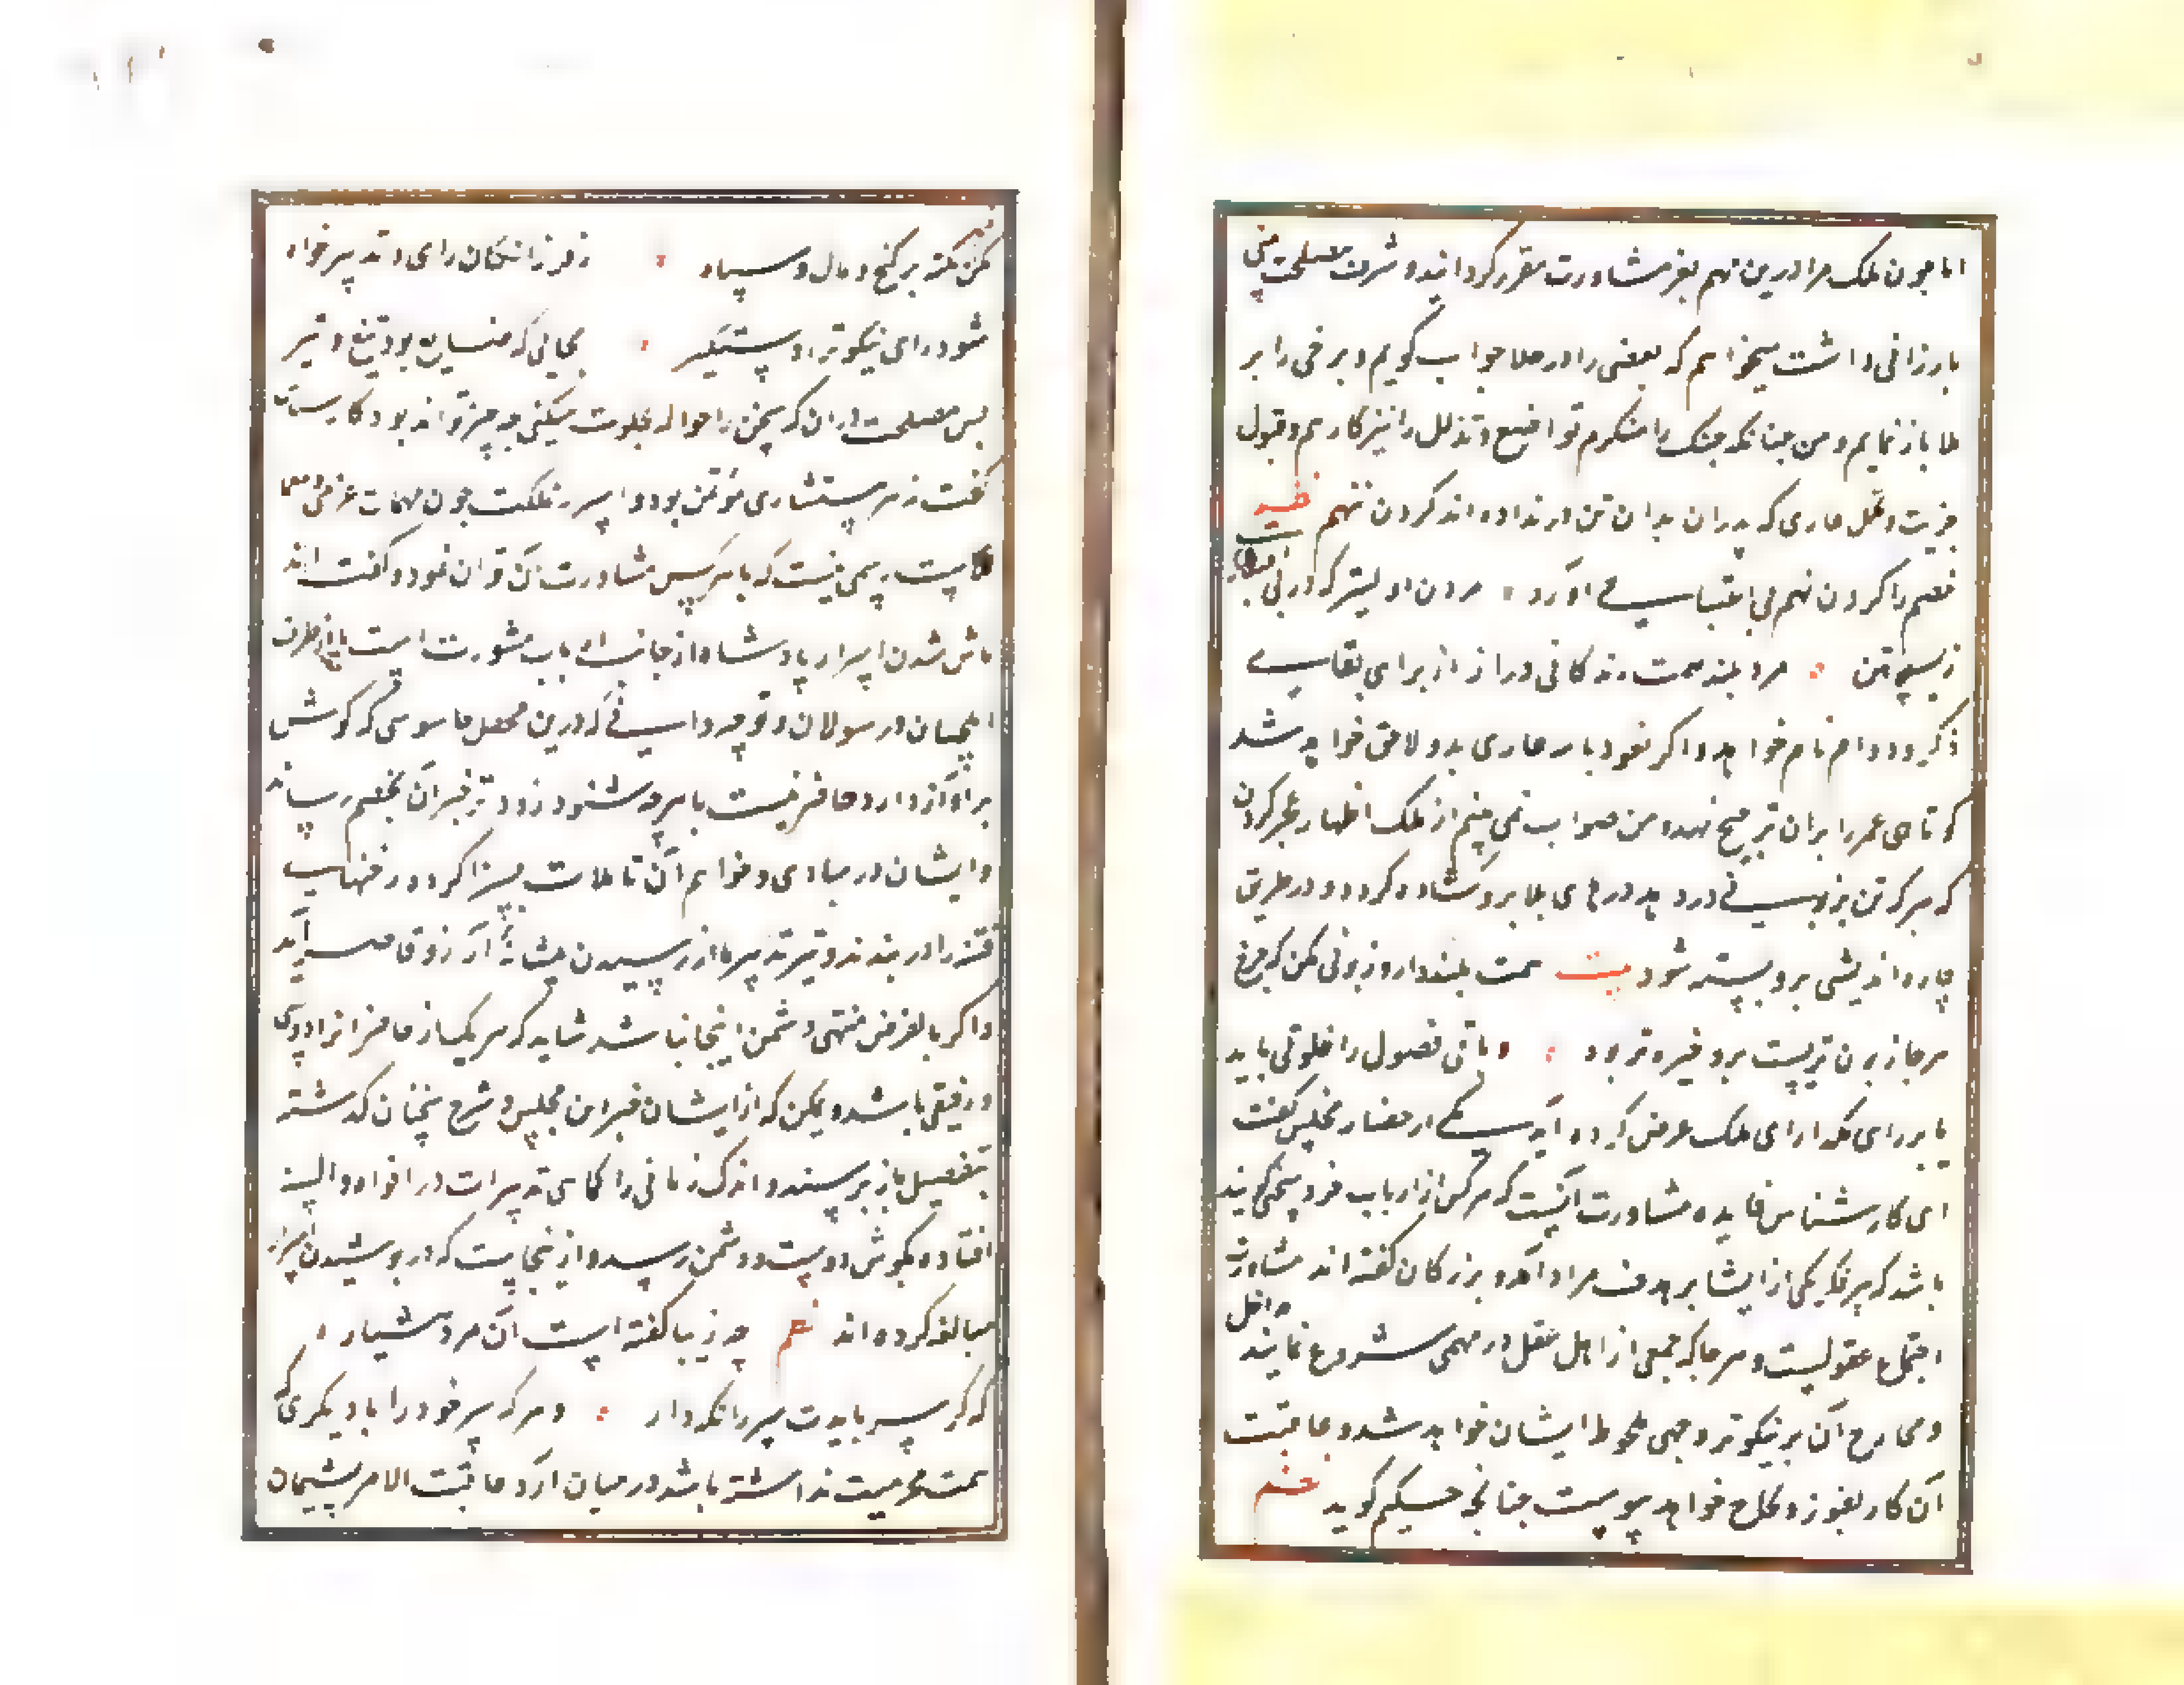 اما چون ملک مرا درین مهم بعز مشاورت مقرر گردانید و شرف مصلحت بینی
بارزانی داشت میخواهم که بعضی را در ملا جواب گویم و برخی را بر
ملا باز نمایم و من چنانکه جنک را منکرم تواضع و تذلل را نیز کارهم و قبول
جزیت و تحمل عاری که پدران بدان تن در نداده اند گردن ننهم
خصم را گردن نهم بی اعتباری آورد مردن اولیتر که در بی اعتباری
زیستن مرد بلند همت زندگانی دراز از برای بقای
ذکر و دوام نام خواهد و اگر نعوذ بالله عاری بدو لاحق خواهد شد
کوتاهی عمر را بران ترجیح نهد و من صواب نمی بینم از ملک اظهار عجز کردن
که هر که تن بزبونی در دهد درهای بلا برو گشاده گردد و در طریق
چاره اندیشی برو بسته شود بیت همت بلند دار و زبونی مکن که چرخ
هر جا زبون تریست برو خیره تر بود و باقی فصول را خلوتی باید
تا بر رای ملک ارای ملک عرض کرده آید یکی از حضار مجلس گفت
ای کارشناس فایده مشاورت آنست که هر کس از ارباب خرد سخنی گویند
باشد که تیر فکر یکی از ایشان بر هدف مراد آید و بزرگان گفته اند مشاورت
اجتماع عقولست و هر جا که جمعی از اهل عقل در مهمی شروع نمایند
مداخل و مخارج آن بر نیکوتر وجهی ملحوظ ایشان خواهد شد و عاقبت
آن کار بفوز و نجاح خواهد پیوست چنانچه حکیم گوید
مکن تکیه بر گنج و مال و سپاه زفرزانگان رای و تدبیر خواه
شود رای نیکو ترا دستگیر بجایی که ضایع بود تیغ و تیر
پس مصلحت دران که سخن را حواله بخلوت میکنی چه چیز تواند بود کارشناس
گفت نه هر مستشاری مؤتمن بود و اسرار مملکت چون مهمات
رسمی نیست که با هر کس مشاورت آن توان نمود و گفته اند
فاش شدن اسرار پادشاه از جانب ارباب مشورت است یا از طرف
ایلچیان و رسولان و تو چه دانی که درین محفل جاسوسی که گوش
بر آواز دارد حاضر نیست تا هر چه شنود زود تر خبر آن بخصم رساند
و ایشان در مبادی و خواتیم آن تاملات بسزا کرده رخنهای
فتنه را در بندند و تیر تدبیر ما از رسیدن بنشانه آرزو قاصر آید
و اگر بالفرض منهی دشمن اینجا نباشد شاید که هر یک از حاضرانرا دوستی
و رفیقی باشد و ممکن که از ایشان خبر این مجلس و شرح سخنان گذشته
بتفصیل باز پرسند و اندک زمانی را تدبیرات در افواه و السنه
افتاده بگوش دوست و دشمن رسد و ازینجاست که در پوشیدن اسرار
مبالغه کرده اند چه زیبا گفته است آن مرد هشیار
که گر سر بایدت سر را نگه دار و هر که سر خود را با دیگری که
سمت محرمیت نداشته باشد در میان آرد عاقبت الامر پشیمان